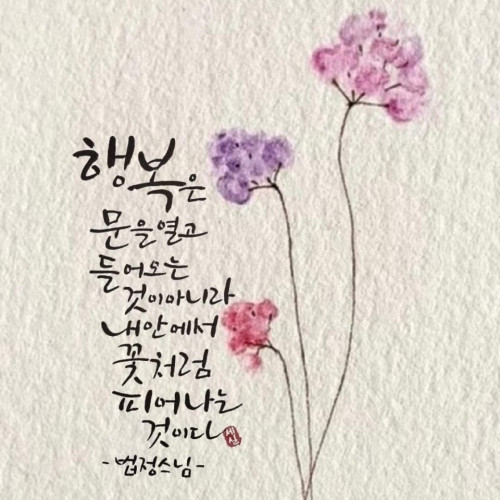 행복은
문을열고
들어오는
것이아니라
내안에서
꽃처럼
피어나는
것이다
-법정스님-